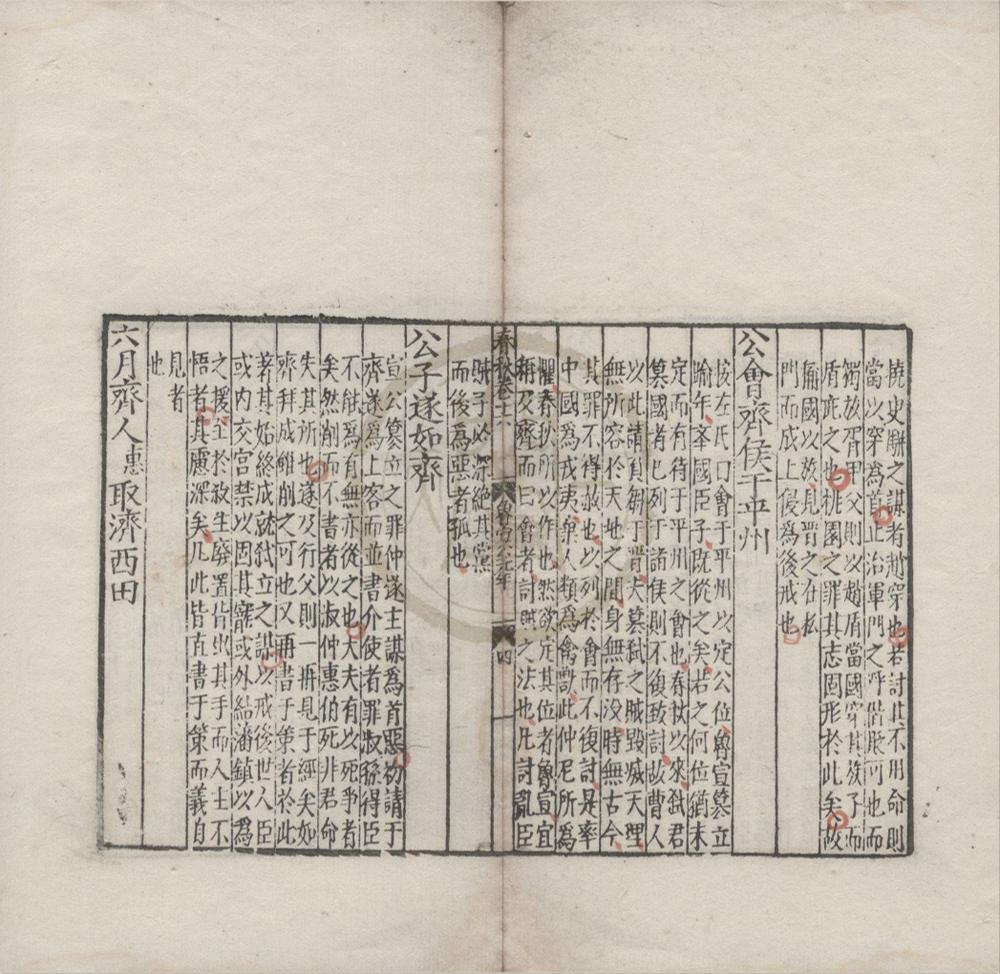 撓史駢之謀者趙穿也若討其不用命則
當以穿為首止治軍門之呼偕厥可也而
獨放胥甲父則以趙盾當國穿其族子而
盾庇之也桃園之罪其志固形於此矣故
稱國以放見晋之在私
門而成上侵為後戒也
公會齊侯于平州
按左氏曰會于平州以定公位魯宣篡立
踰年舉國臣子既從之矣若之何位猶未
定而有待于平州之會也春秋以來弑君
篡國者已列于諸侯則不復致討故曹人
以此請負芻于晋夫篡弑之賊毀滅天理
無所容於天地之間身無存没時無古今
其罪不得赦也以列於會而不復討是率
中國為戎夷棄人類為禽獸此仲尼所為
懼春秋所以作也然欲定其位者魯宣宜
稱及齊而曰會者討賊之法也凡討亂臣
賊子必深絶其黨
而後為惡者孤也
春秋卷十六 魯宣公元年 四
公子遂如齊
宣公篡立之罪仲遂主謀為首惡初請于
齊遂為上客而並書介使者罪叔孫得臣
不能為有無亦從之也大夫有以死爭者
矣然削而不書者以叔仲惠伯死非君命
失其所也遂及行父則一再見于經矣如
齊拜成雖削之可也又再書于策者於此
著其始終成就弑立之謀以戒後世人臣
或内交宫禁以固其寵或外結藩鎮以為
之援至於殺生廢置皆出其手而人主不
悟者其慮深矣凡此皆直書于策而義自
見者
也
六月齊人惠取濟西田